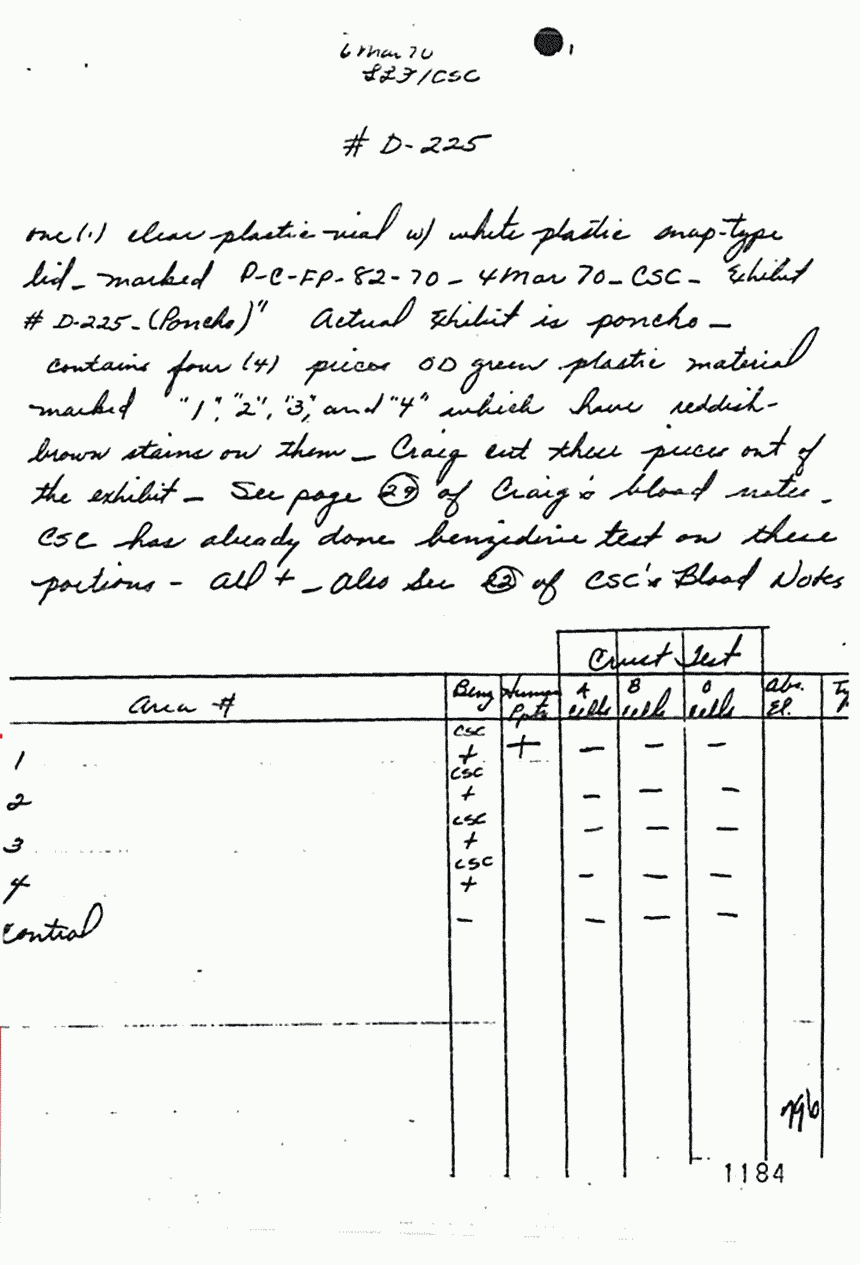 6 Mar 70
/CSC
# D-225
one (1) clear plastic vial w/ white plastic snap-type
lid - marked P-C-FP-82-70 - 4 Mar 70 - CSC - Exhibit
# D-225 - (Poncho)" Actual Exhibit is poncho -
contains four (4) pieces OD green plastic material
marked "1", "2", "3", and "4" which have reddish-
brown stains on them - Craig cut these pieces out of
the exhibit - See page 29 of Craig's blood notes -
CSC has already done benzidine test on these
portions - all + - Also See of CSC's Blood Notes
Crust Test
Area # Benz Human Ppts A cells B cells O cells Abs. El.
1 CSC + + - - -
2 CSC + - - -
3 CSC + - - -
4 CSC + - - -
Control - - - -
1184